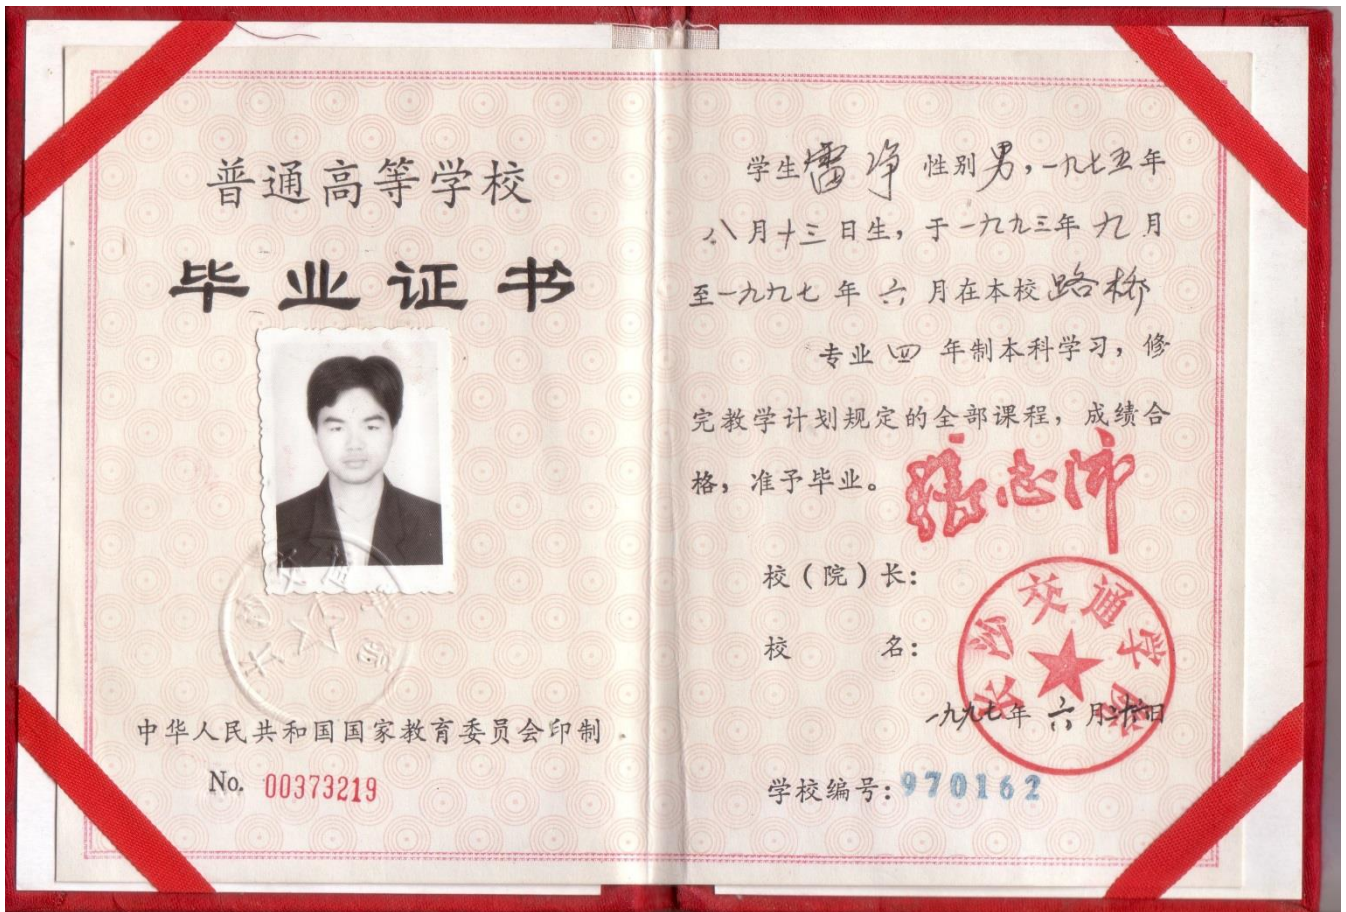 普通高等学校
毕业证书
中华人民共和国国家教育委员会印制
No. 00373219
学生雷净 性别男，一九七五年
八月十三日生，于一九九三年九月
至一九九七年六月在本校路桥
专业四年制本科学习，修
完教学计划规定的全部课程，成绩合
格，准予毕业。
校（院）长：
校 名：
长沙交通学院
一九九七年六月 日
学校编号：970162